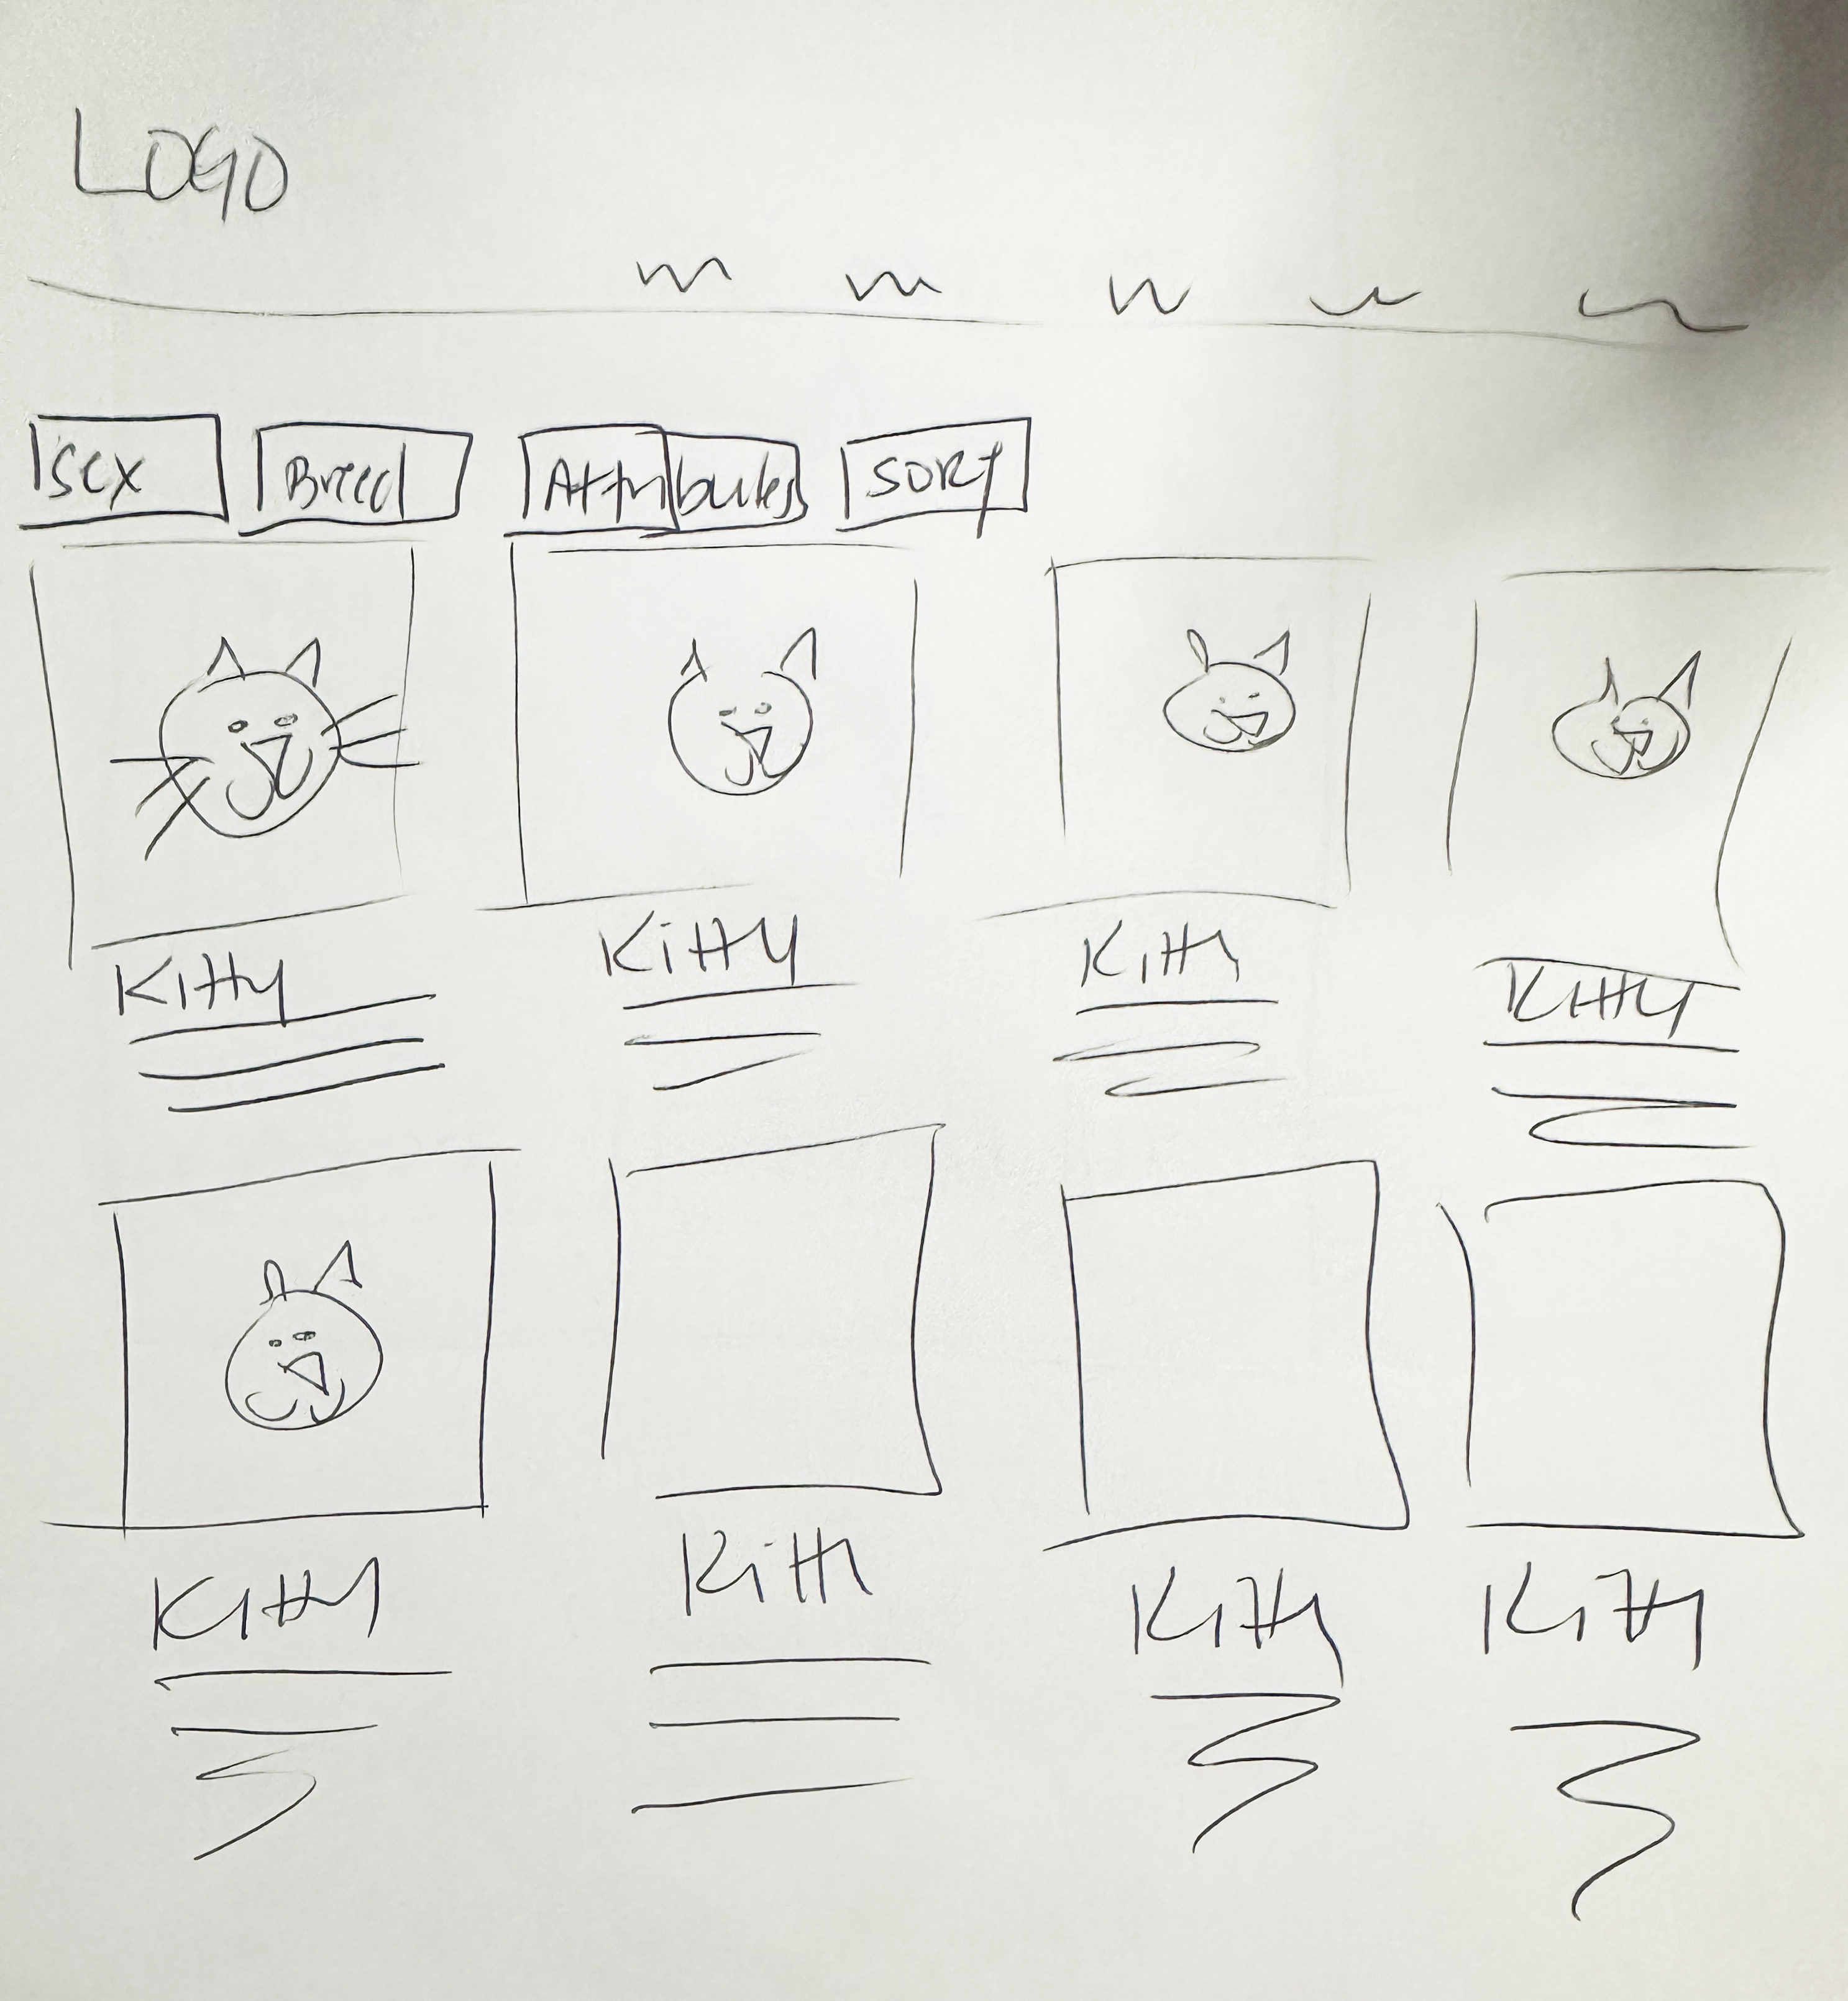 LOGO
Sex Breed Attributes SORT
Kitty Kitty Kitty Kitty
Kitty Kitty Kitty Kitty